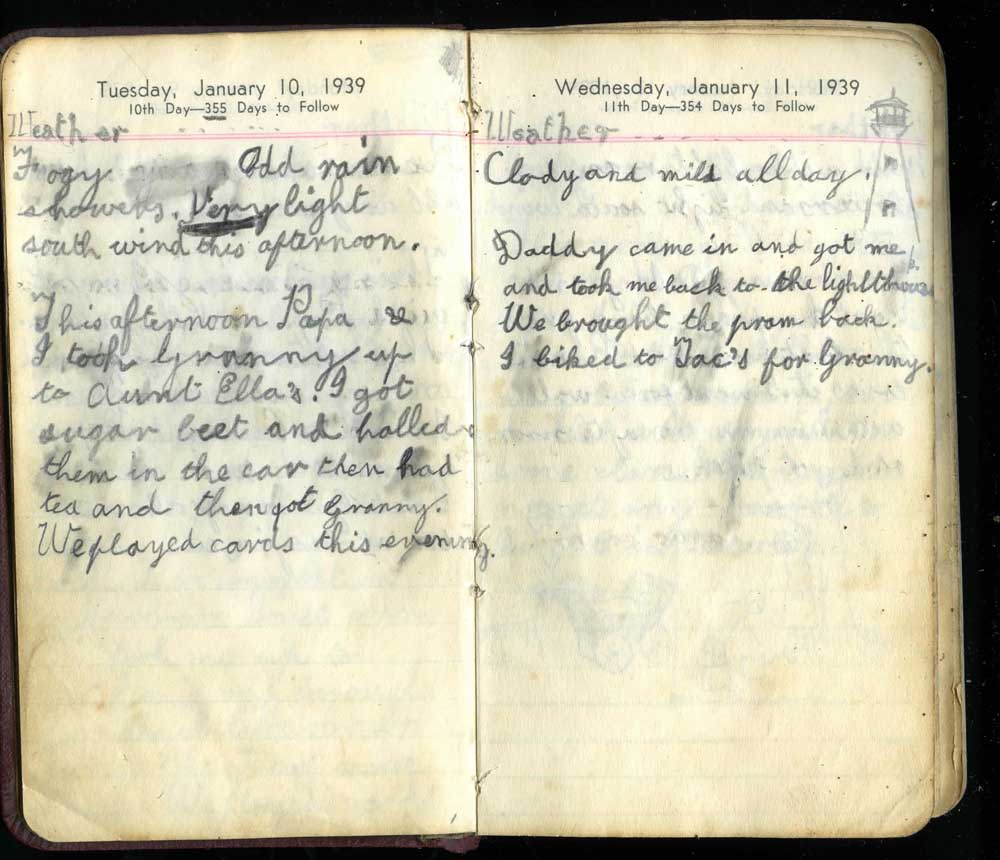 Tuesday, January 10, 1939
10th Day—355 Days to Follow
Weather
Fogy Odd rain
showers. Very light
south wind this afternoon.
This afternoon Papa &
I took Granny up
to Aunt Ella's. I got
sugar beet and halled
them in the car then had
tea and then got Granny.
We played cards this evening.
Wednesday, January 11, 1939
11th Day—354 Days to Follow
Weather
Clody and mild all day.
Daddy came in and got me
and took me back to the
We brought the pram back.
I biked to Jac's for Granny.